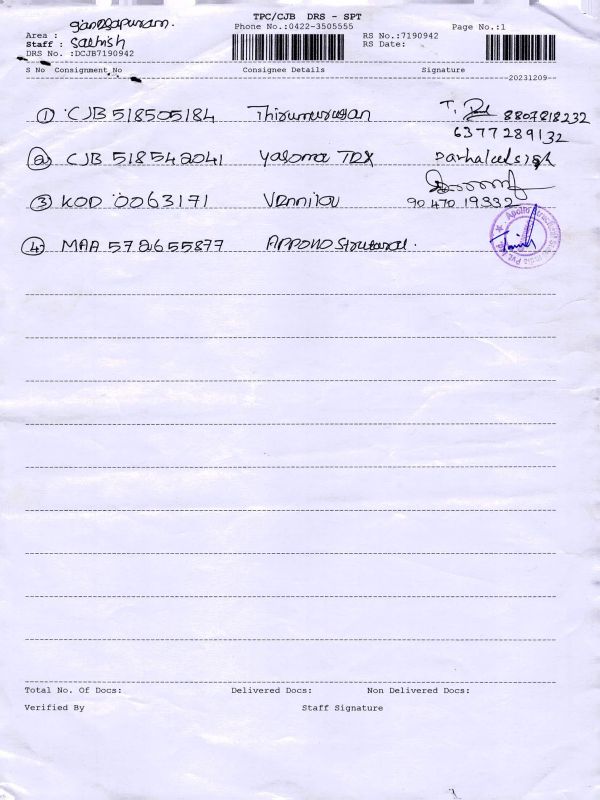 TPC/CJB DRS - SPT
Phone No.:0422-3505555
Page No.:1
Area :
Staff : Sathish
DRS No. :DCJB7190942
RS No.:7190942
RS Date:
S No Consignment No Consignee Details Signature
20231209
1 CJB 518505184 Thirumurugan T. 8807818232
6377289132
2 CJB 518542041 Yasoma TEX
3 KOD 0063171 Vennilou 90 470 19332
4 MAA 572655877 APPOLLO Structural.
Total No. Of Docs: Delivered Docs: Non Delivered Docs:
Verified By Staff Signature